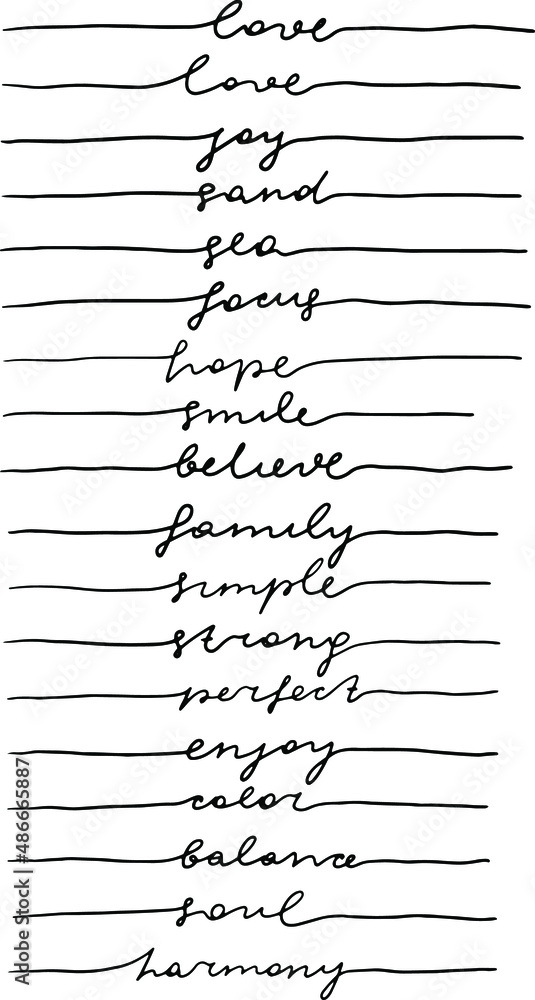 love
love
joy
sand
sea
focus
hope
smile
believe
family
simple
strong
perfect
enjoy
color
balance
soul
harmony
Adobe Stock | #486665887